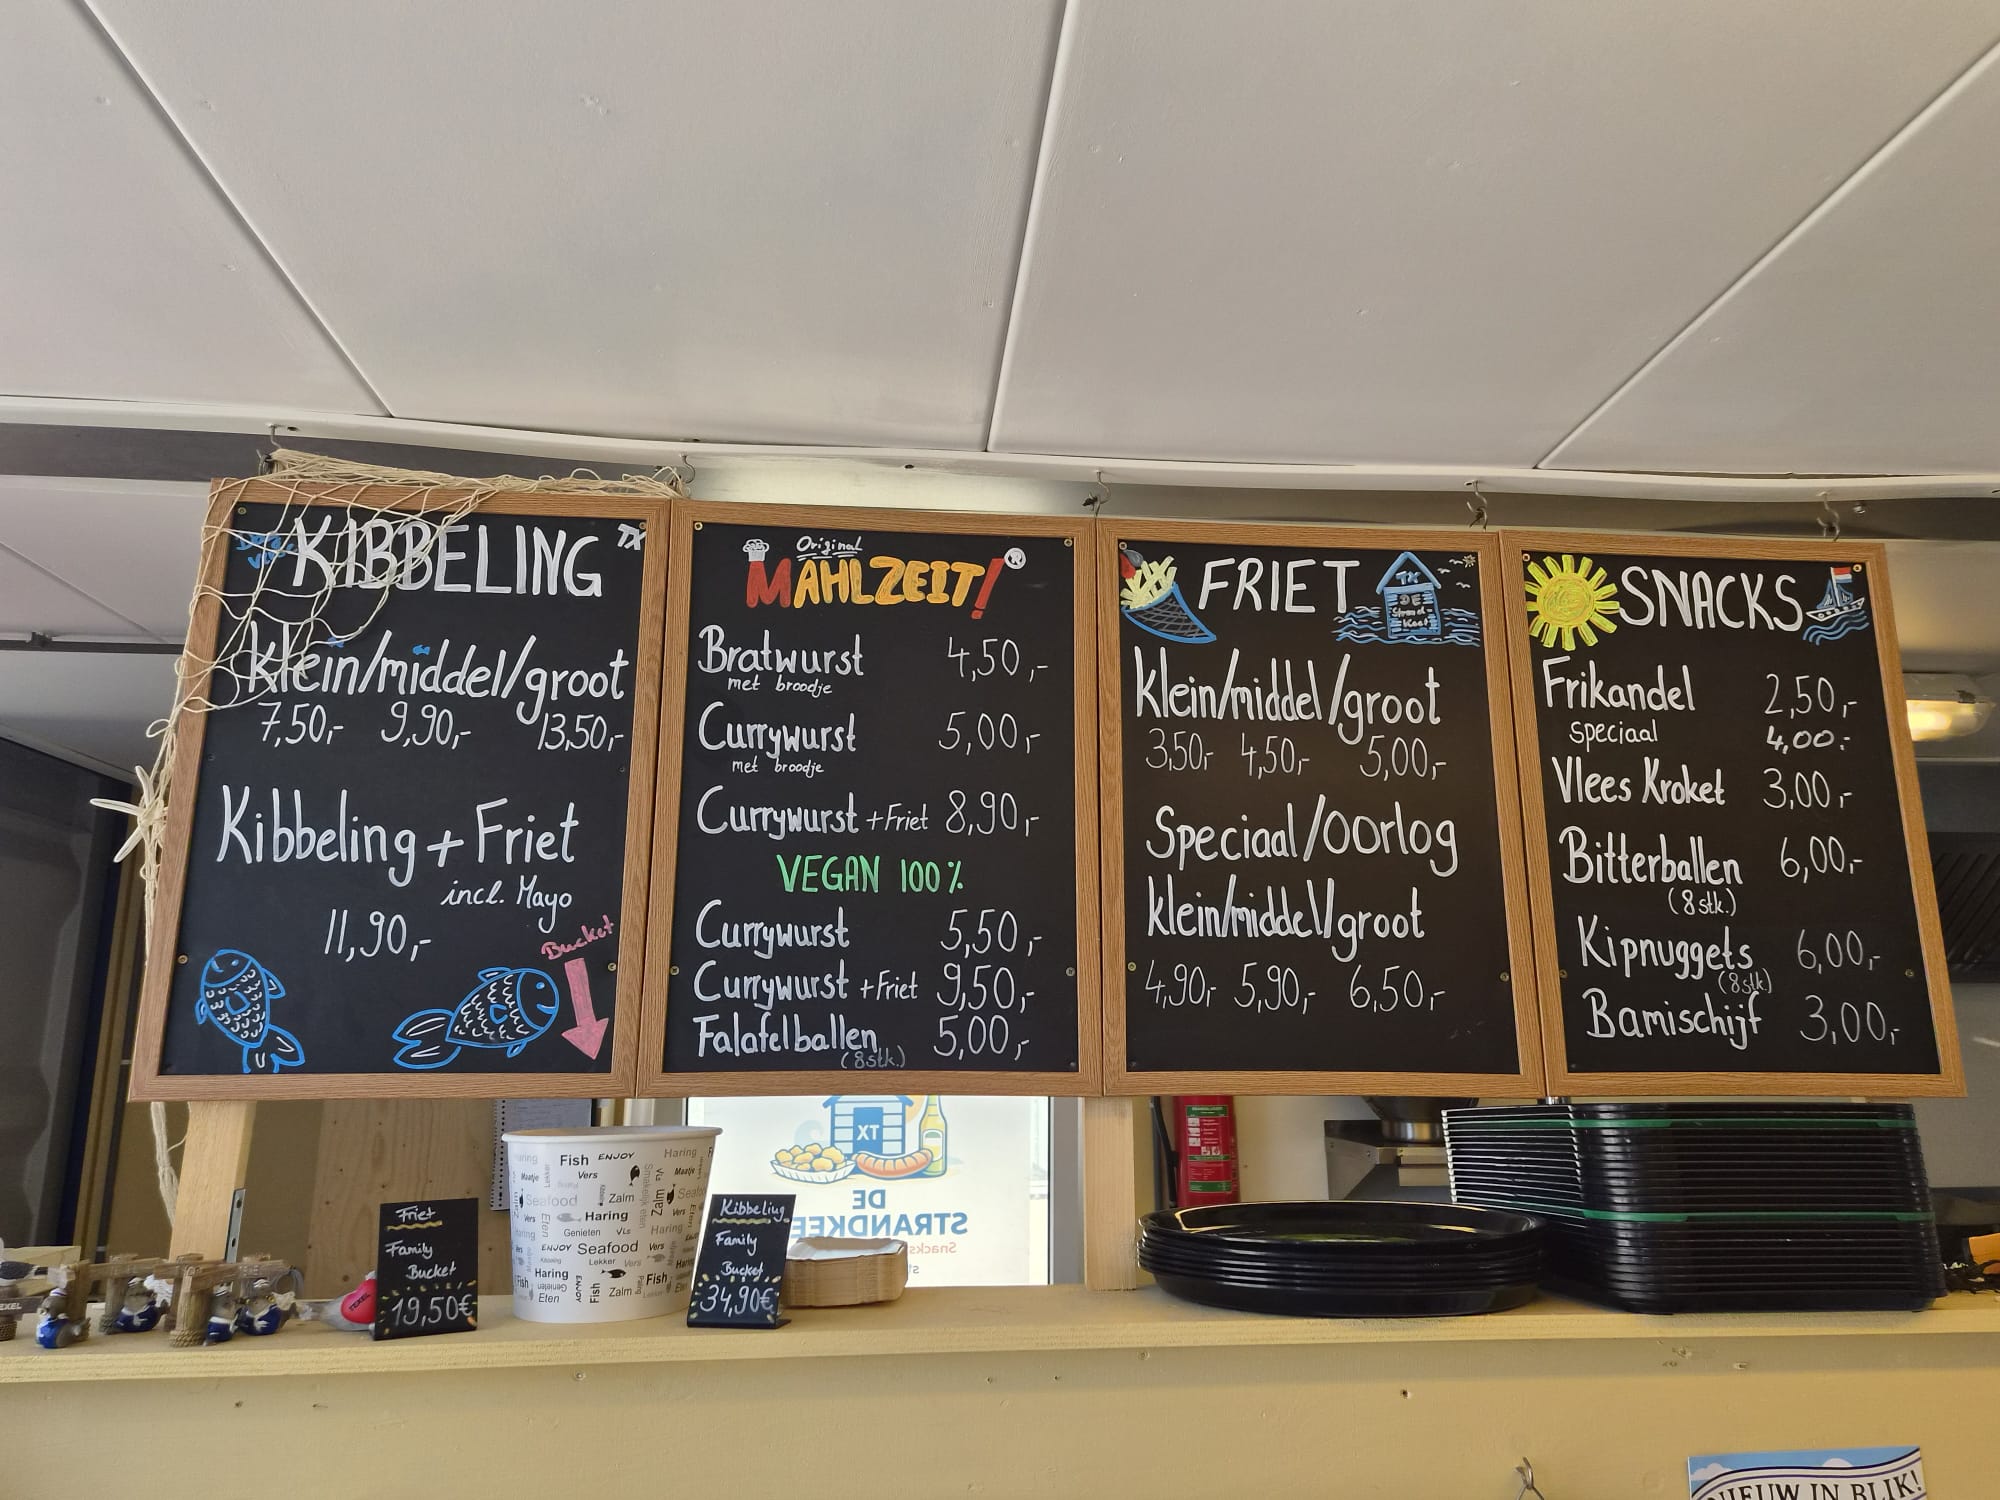 KIBBELING
TX
klein/middel/groot
7,50,- 9,90,- 13,50,-
Kibbeling + Friet
incl. Mayo
11,90,-
Bucket
Original
MAHLZEIT! ®
Bratwurst 4,50,-
met broodje
Currywurst 5,00,-
met broodje
Currywurst + Friet 8,90,-
VEGAN 100%
Currywurst 5,50,-
Currywurst + Friet 9,50,-
Falafelballen 5,00,-
(8stk.)
FRIET
TX
DE
klein/middel/groot
3,50,- 4,50,- 5,00,-
Speciaal/Oorlog
klein/middel/groot
4,90,- 5,90,- 6,50,-
SNACKS
Frikandel 2,50,-
speciaal 4,00,-
Vlees Kroket 3,00,-
Bitterballen 6,00,-
(8stk.)
Kipnuggets 6,00,-
(8stk.)
Bamischijf 3,00,-
Friet
Family
Bucket
19,50€
Haring Fish ENJOY Haring
Vers
Seafood Zalm
Haring
Genieten
ENJOY Seafood
Lekker
Haring Fish
Zalm
Eten
Kibbeling
Family
Bucket
34,90€
TX
DE
STRANDKEE
Snacks
TEXEL
NIEUW IN BLIK!